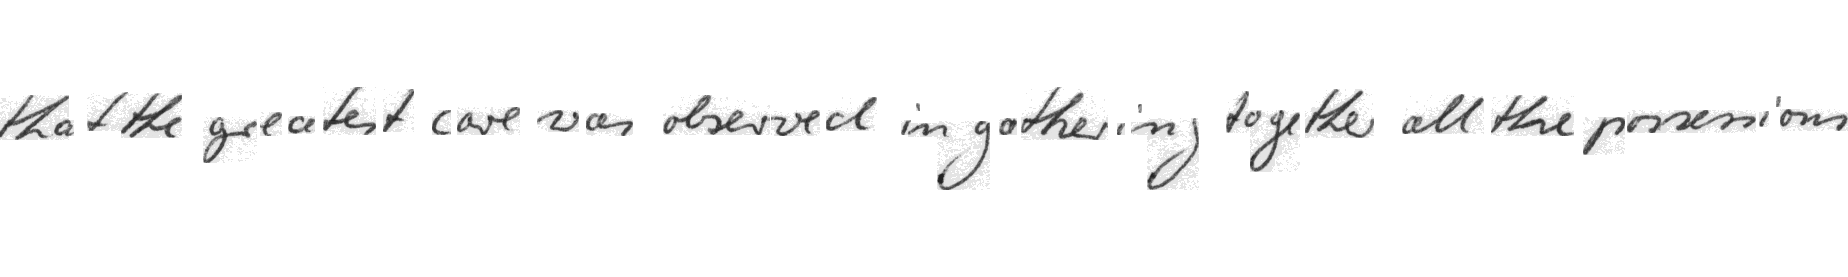 that the greatest care was observed in gathering together all the possessions